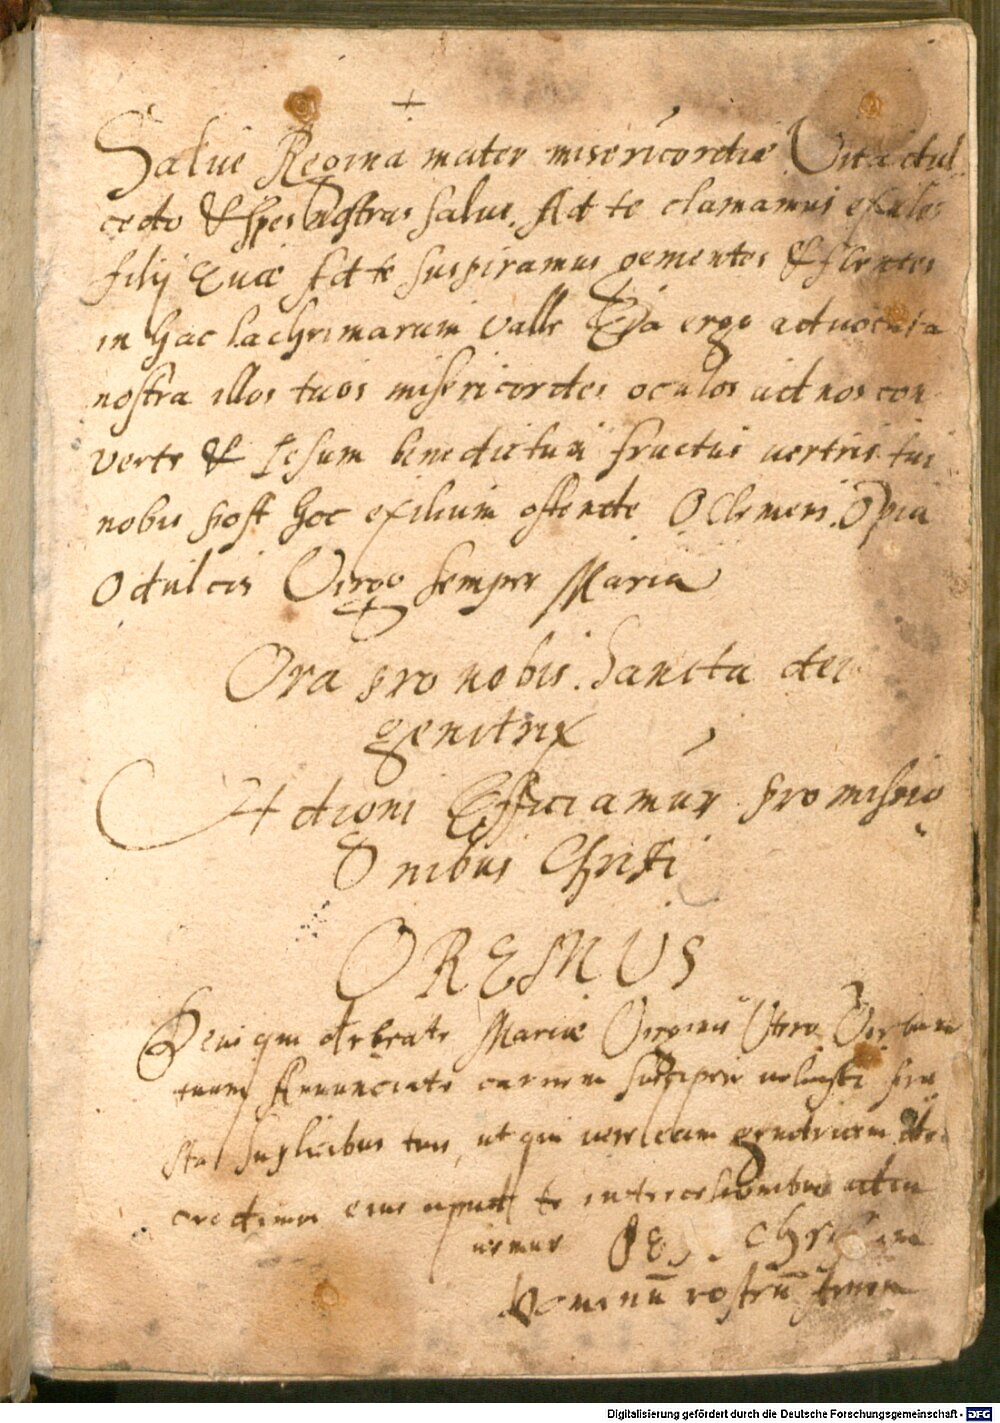 +
Salue Regina mater misericordiæ Vita dul
cedo & spes nostras salue. Ad te clamamus exules
filij Euæ Ad te suspiramus gementes & flentes
in hac lachrimarum valle Eia ergo aduocata
nostra illos tuos misericordes oculos ad nos con
verte & Iesum benedictum fructus uentris tui
nobis post hoc exilium ostende O Clemens. O pia
O dulcis Virgo semper Maria
Ora pro nobis. Sancta dei
genitrix
digni Efficiamur promissio
nibus Christi
OREMUS
Deus qui de beate Mariæ Virginis Vtero Verbum
tuum Annunciate carnem suscipere uoluisti præ
sta suplicibus tuis, ut qui uere eam genitricem dei
credimus eius apud te intercessionibus adiu
uemur PE. Christum
Dominū nostrū Amen
Digitalisierung gefördert durch die Deutsche Forschungsgemeinschaft - DFG